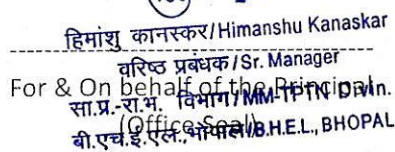 हिमांशु कानस्कर/Himanshu Kanaskar
वरिष्ठ प्रबंधक/Sr. Manager
For & On behalf of the Principal
सा.प्र.-रा.भ. विभाग/MM-TPTN Divn.
(Office Seal)
बी.एच.ई.एल., भोपाल/B.H.E.L., BHOPAL